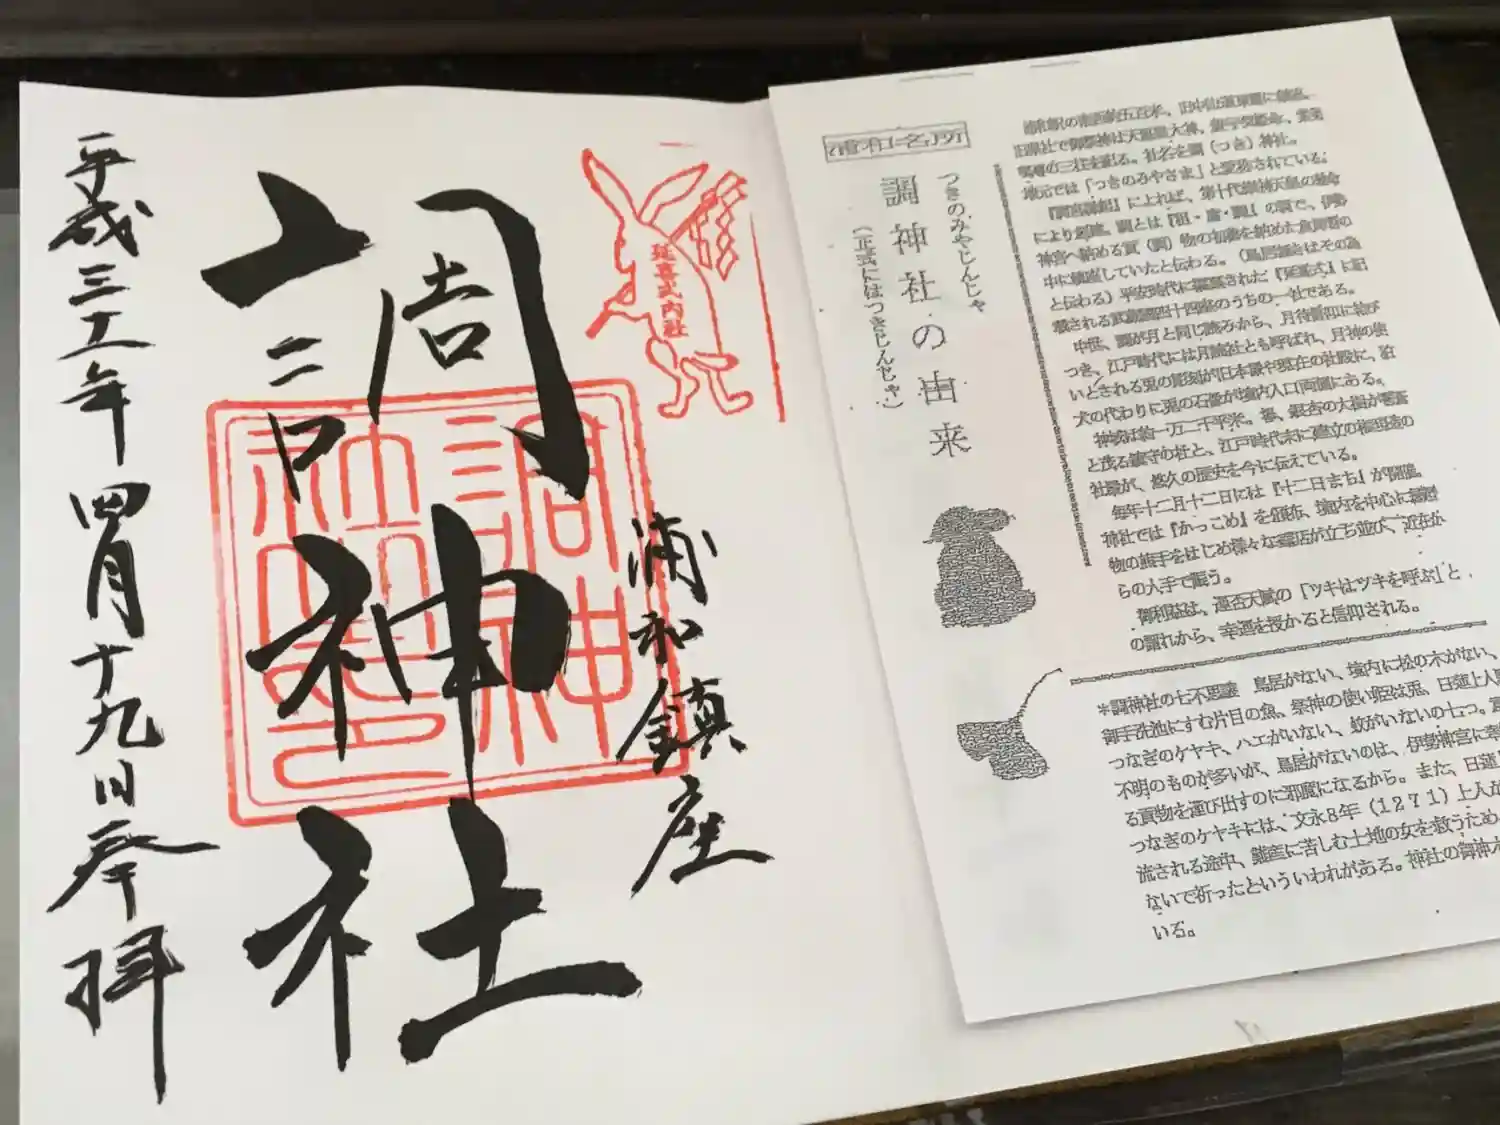 延喜式内社
浦和鎮座
調神社
平成三十一年四月十九日奉拝
浦和名所
つきのみやじんじゃ
調神社の由来
(正式にはつきじんじゃ)
社名を調(つき)神社。
地元では「つきのみやさま」と愛称されている。
により創建。調とは『租・庸・調』の調で、伊勢
神宮へ納める貢(調)物の初穂を納めた倉
中に鎮座していたと伝わる。(鳥居
と伝わる)平安時代に編纂された『延喜式』に記
載される武蔵国四十四座のうちの一社である。
中世、調が月と同じ読みから、月待信仰に結び
つき、江戸時代には月読社とも呼ばれ、月神の使
いとされる兎の彫刻が旧本殿や現在の社殿に、狛
犬の代わりに兎の石像が境内入口両側にある。
神域は約一万二千平米。欅、銀杏の大樹が
と茂る鎮守の杜と、江戸時代末に建立の権現造の
社殿が、悠久の歴史を今に伝えている。
毎年十二月十二日には『十二日まち』が開催。
神社では『かっこめ』を頒布、境内を中心に
物の熊手をはじめ様々な露店が立ち並び、近在か
らの人手で賑う。
御利益は、運否天賦の「ツキはツキを呼ぶ」と
の謂れから、幸運を授かると信仰される。
*調神社の七不思議 鳥居がない、境内に松の木がない、
御手洗池にすむ片目の魚、祭神の使い姫は兎、日蓮上人
つなぎのケヤキ、ハエがいない、蚊がいないの七つ。
不明のものが多いが、鳥居がないのは、伊勢神宮に
る貢物を運び出すのに邪魔になるから。また、日蓮
つなぎのケヤキには、文永8年(1271)上人が
流される途中、難産に苦しむ土地の女を救うため、
ないで祈ったといういわれがある。神社の御神木
いる。